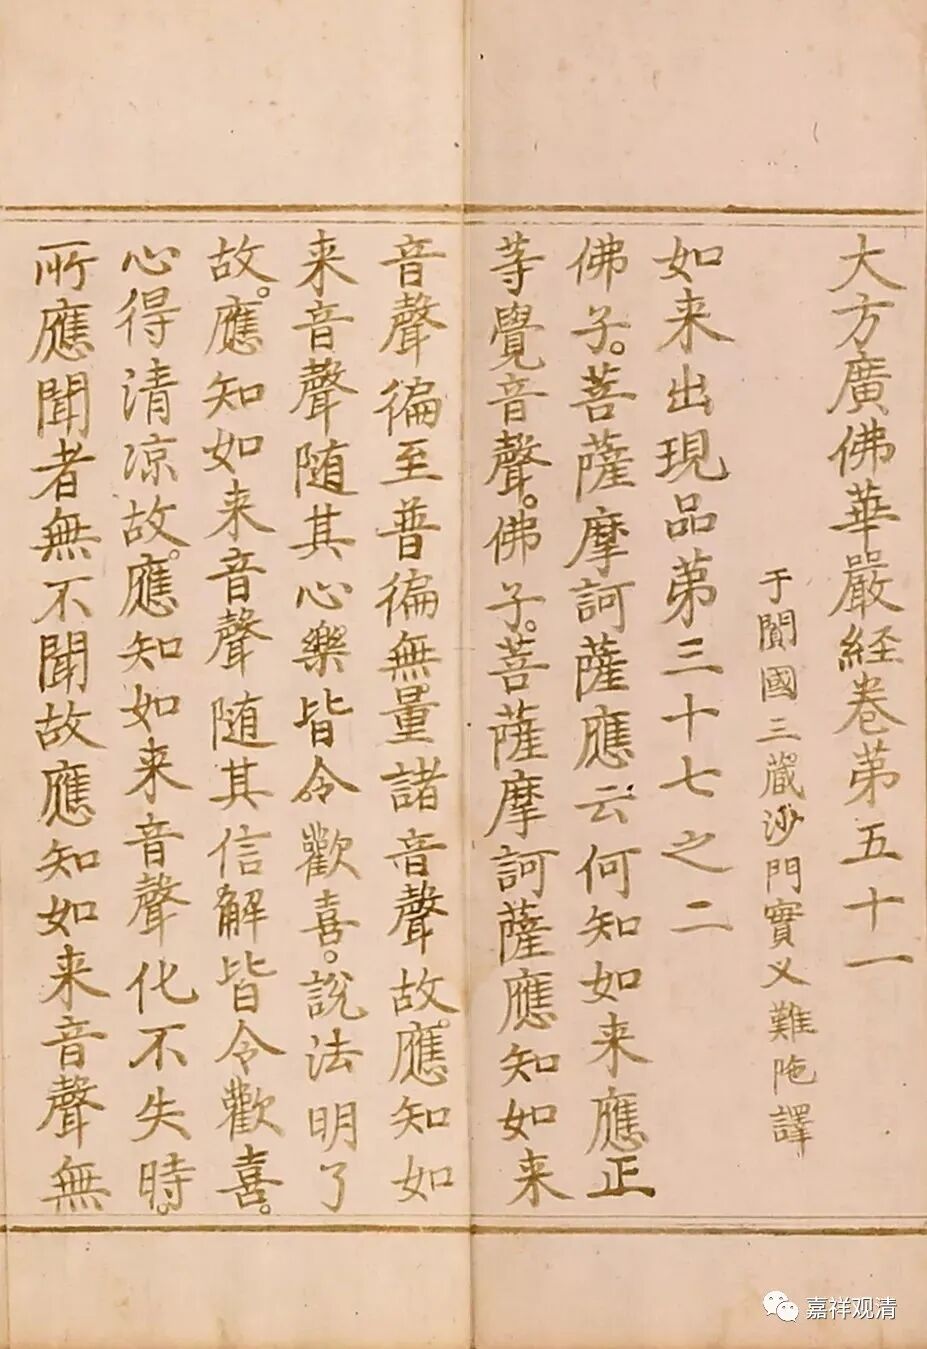 大方廣佛華嚴経卷苐五十一
于闐國三蔵沙門實乂難陁譯
如来出現品苐三十七之二
佛子。菩薩摩訶薩應云何知如来應正
䓁覺音聲。佛子。菩薩摩訶薩應知如来
音聲徧至普徧無量諸音聲故。應知如
来音聲随其心樂皆令歡喜。說法明了
故。應知如来音聲随其信解皆令歡喜。
心得清凉故。應知如来音聲化不失時。
所應聞者無不聞故應知如来音聲無
嘉祥观清